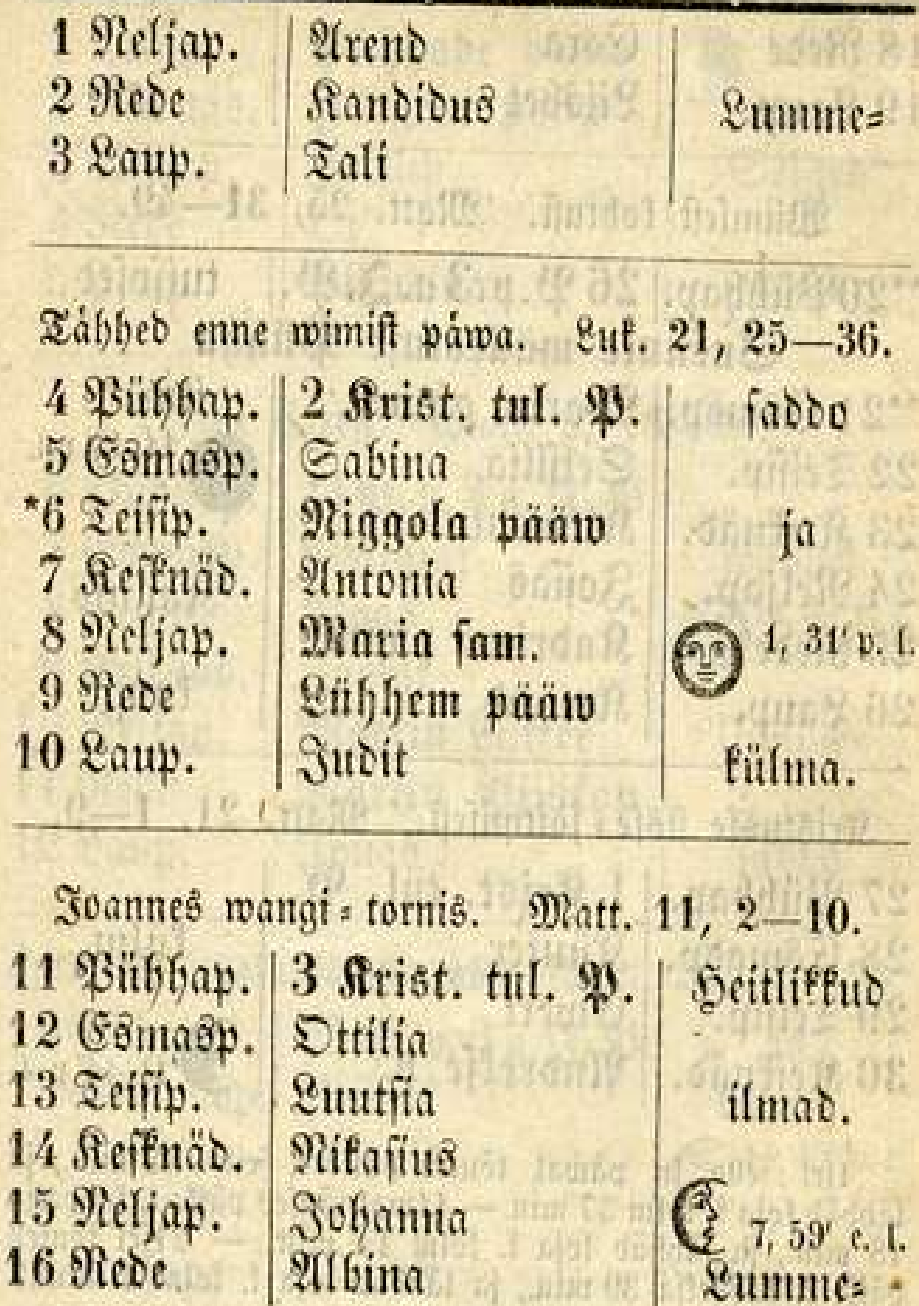 1 Neljap. Arend
2 Rede Kandidus Lumme=
3 Laup. Tali
Tähhed enne wimist päwa. Luk. 21, 25—36.
4 Pühhap. 2 Krist. tul. P. saddo
5 Esmasp. Sabina
*6 Teisip. Niggola pääw ja
7 Kesknäd. Antonia
8 Neljap. Maria sam. 1, 31' p. l.
9 Rede Lühhem pääw
10 Laup. Judit külma.
Joannes wangi=tornis. Matt. 11, 2—10.
11 Pühhap. 3 Krist. tul. P. Heitlikkud
12 Esmasp. Ottilia
13 Teisip. Luutsia ilmad.
14 Kesknäd. Nikasius
15 Neljap. Johanna 7, 59' e. l.
16 Rede Albina Lumme=